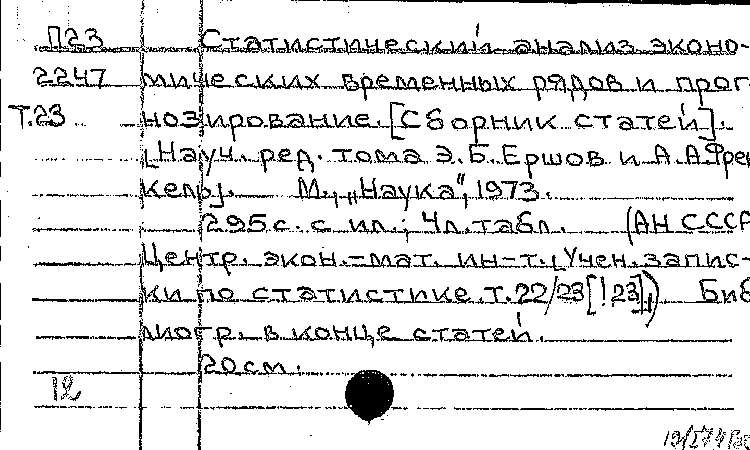 П23 Статистический анализ эконо-
2247 мических временных рядов и прог-
Т.23 нозирование. [Сборник статей].
[Науч. ред. тома Э. Б. Ершов и А. А. Френ
кель]. М., „Наука", 1973.
295 с. с ил.; 4 л. табл. (АН СССР
Центр. экон.-мат. ин-т. [Учен. запис-
ки по статистике. т. 22/23 [! 23].) Биб
лиогр. в конце статей.
20 см.
12